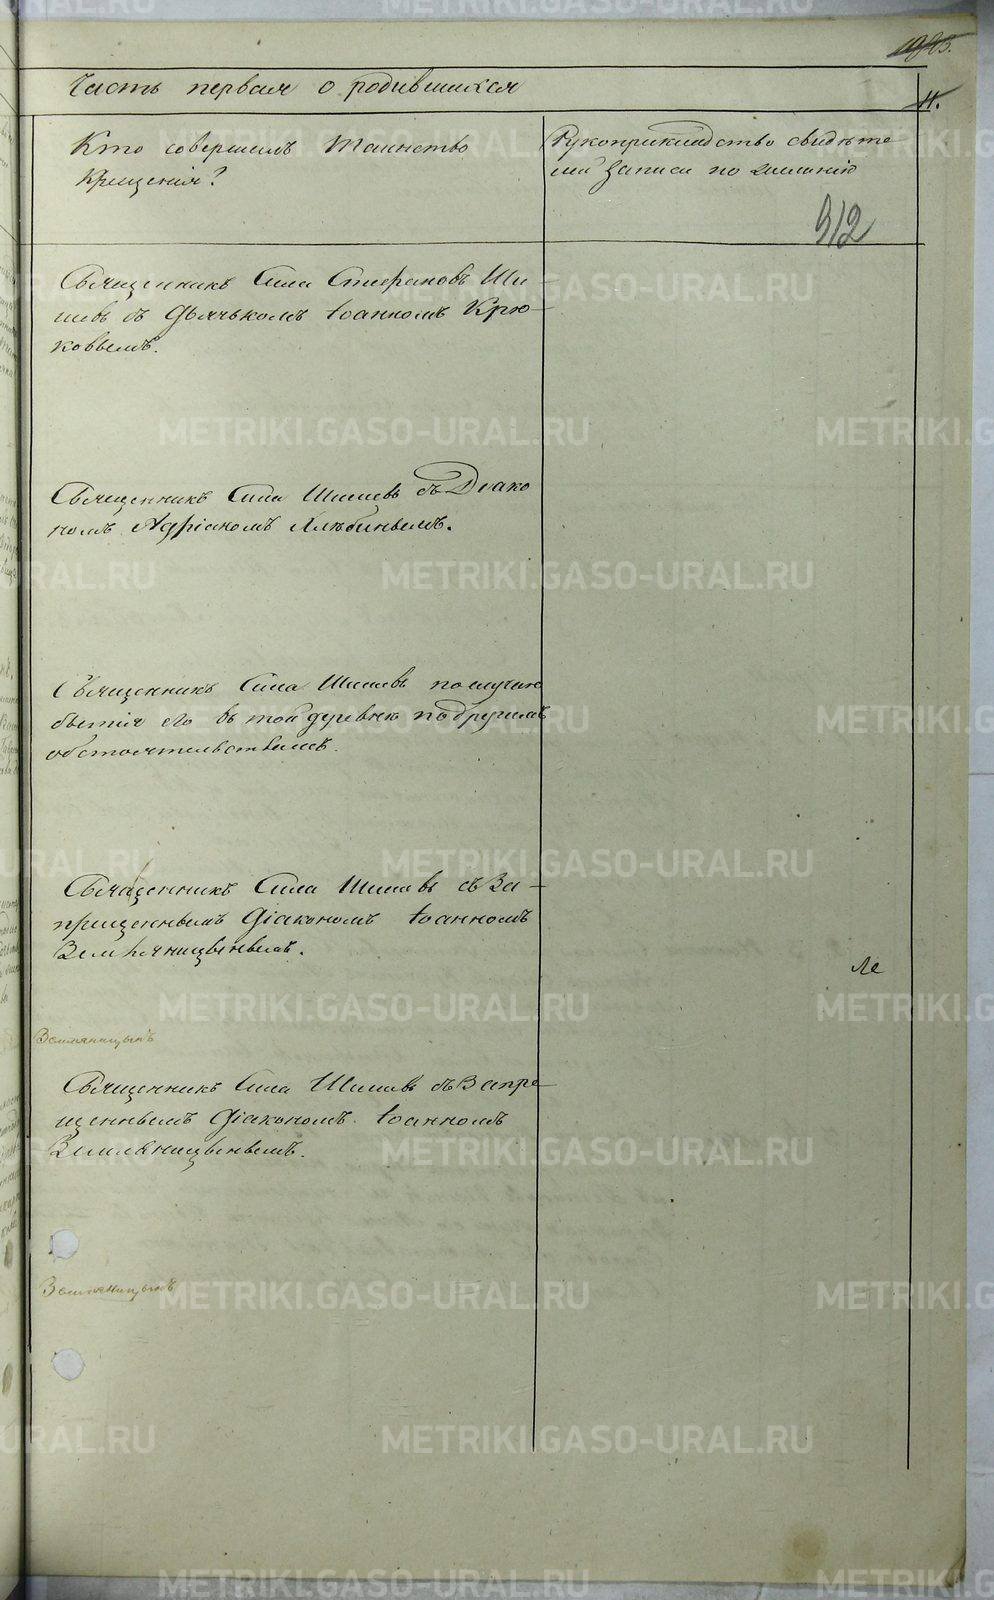 Часть первая о родившихся
11.
Кто совершилъ Таинство
Крещенія?
Рукоприкладство свидѣте
лей записи по желанію
312
Священникъ Сила Стефановъ Ши-
шевъ съ Дьячькомъ Іоанномъ Крю-
ковымъ.
Священникъ Сила Шишевъ съ Діако
номъ Адріаномъ Хлѣбинымъ.
Священникъ Сила Шишевъ по случаю
бытія его въ той деревнѣ по другимъ
обстоятельствамъ.
Священникъ Сила Шишевъ съ За-
прещеннымъ Діакономъ Іоанномъ
Земляницынымъ.
Ле
Земляницынъ
Священникъ Сила Шишевъ съ Запре-
щеннымъ Діакономъ Іоанномъ
Земляницынымъ.
Земляницынъ
METRIKI.GASO-URAL.RU